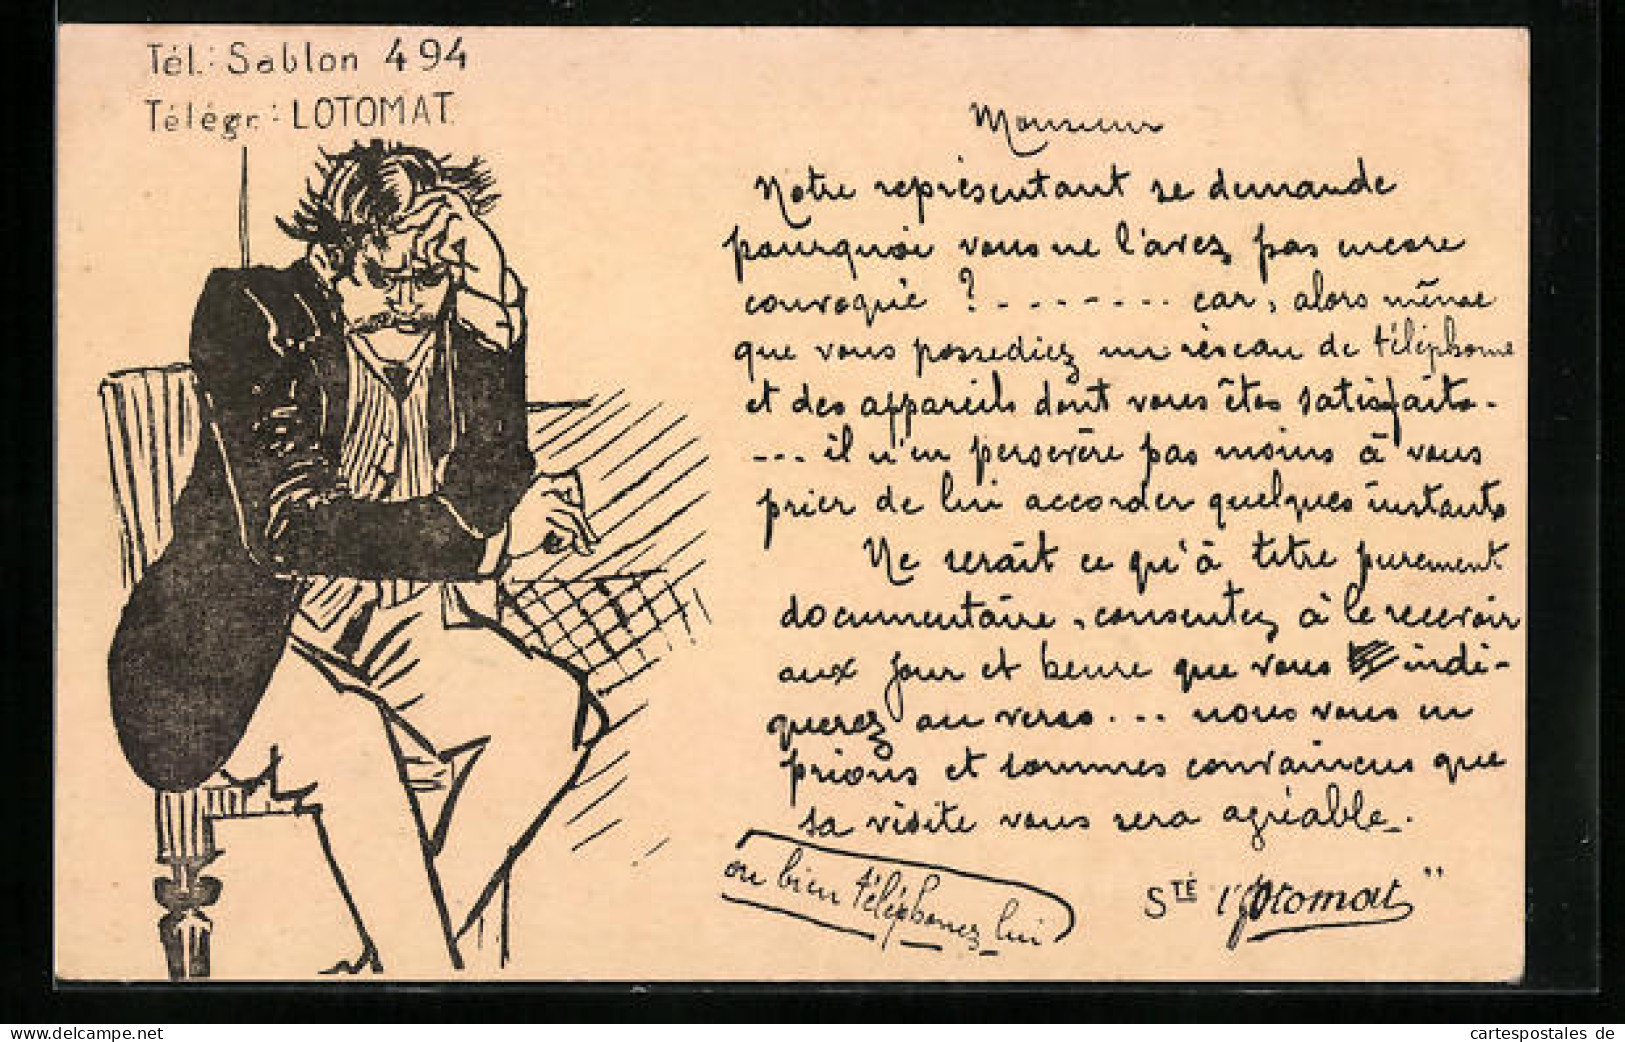 Tél.: Sablon 494
Télégr.: LOTOMAT.
Monsieur
Notre représentant se demande
pourquoi vous ne l'avez pas encore
convoqué ? - - - - - - - car, alors même
que vous possediez un réseau de téléphone
et des appareils dont vous êtes satisfaits -
- - - il n'en persevère pas moins à vous
prier de lui accorder quelques instants
Ne serait ce qu'à titre purement
documentaire, consentez à le recevoir
aux jour et heure que vous indi-
querez au verso... nous vous en
prions et sommes convaincus que
sa visite vous sera agréable.
ou bien téléphonez lui
Sté l'Otomat"
cartespostales de